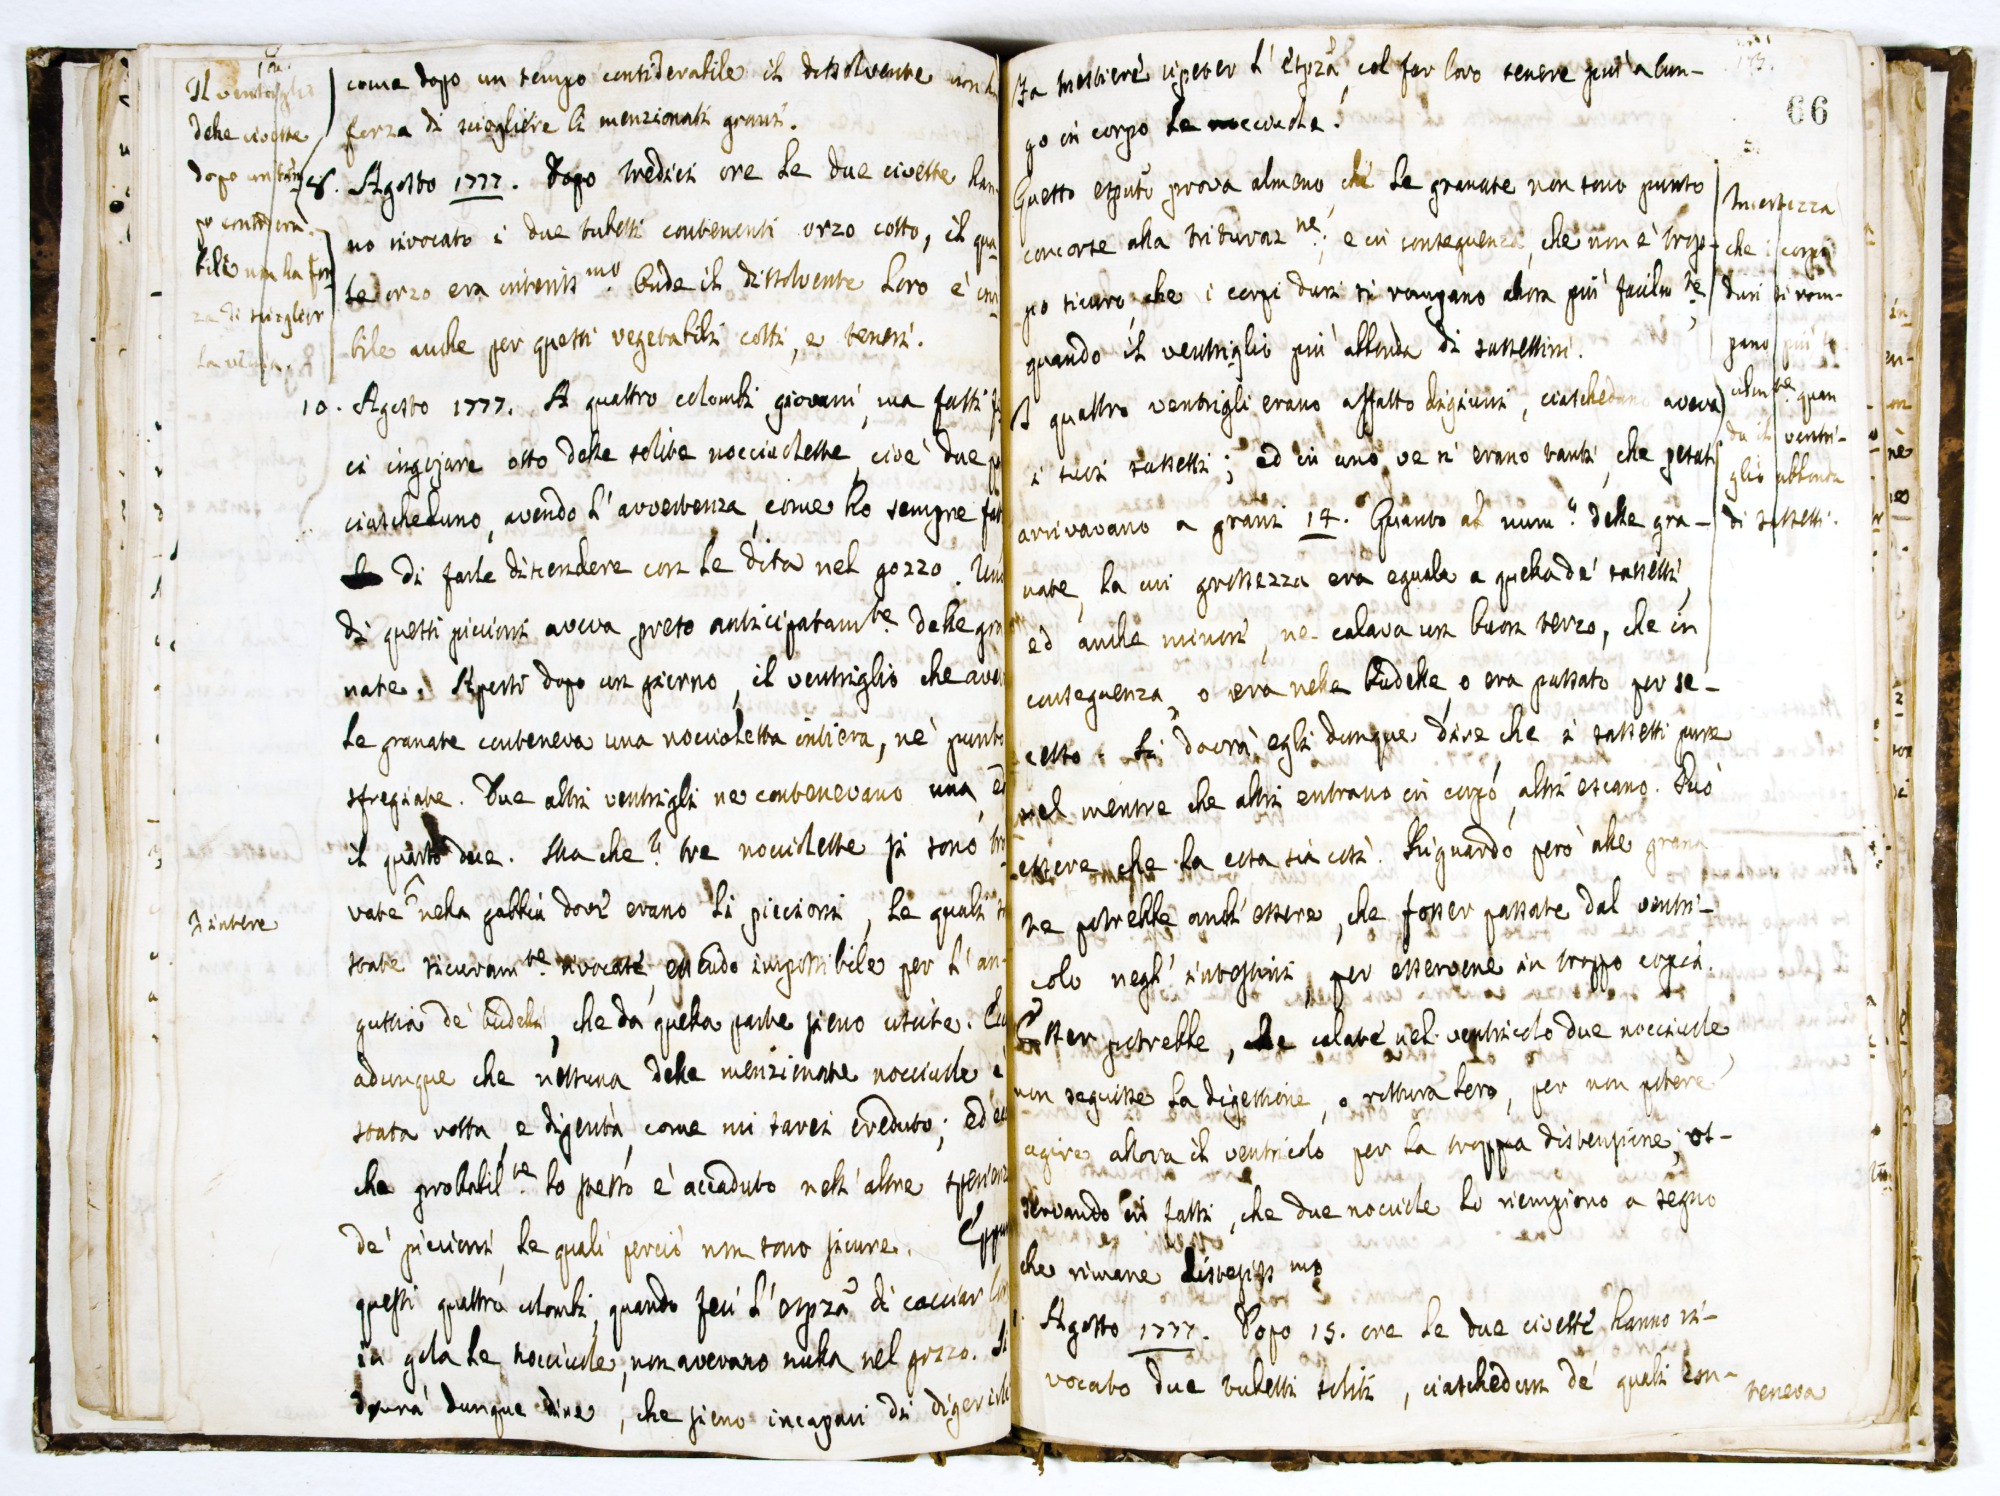 Il ventriglio
delle civette
dopo un tem
po considera-
bile non ha for
za di scioglier
la vena.
come dopo un tempo considerabile il dissolvente non ha
forza di sciogliere li menzionati grani.
8. Agosto 1777. Dopo tredici ore le due civette han-
no rivocato i due tubetti contenenti orzo cotto, il qua-
le orzo era interissmo. Onde il dissolvente loro è
bile anche per questi vegetabili cotti, e teneri.
10. Agosto 1777. A quattro colombi giovani, ma fatti
ci ingojare otto delle solite nocciuolette, cioè due p
ciascheduno, avendo l'avvertenza, come ho sempre fat
di farle discendere con le dita nel gozzo. Uno
di questi piccioni aveva preso anticipatamte delle gra
nate. Aperti dopo un giorno, il ventriglio che avea
le granate conteneva una noccioletta intiera, nè punto
sfregiata. Due altri ventrigli ne contenevano una, ed
il quarto due. Ma che tre nocciolette si sono tro
vate nella gabbia dov'erano li piccioni, le quali so
Intere
state sicuramte rivocate, essendo impossibile per l'an-
gustia de' budelli, che da quella parte sieno uscite.
adunque che nessuna delle menzionate nocciuole è
stata rotta, e digerita, come mi sarei creduto; ed
che probabilte lo stesso è accaduto nell'altre sperienz
de' piccioni, le quali perciò non sono sicure. Eppur
questi quattro colombi, quando feci l'espza di cacciar
in gola le nocciuole, non avevano nulla nel gozzo. Si
dovrà dunque dire, che sieno incapaci di digerirle
66
Fa mestiere ripeter l'espza, col far loro tenere più a lun-
go in corpo le nocciuole.
Questo esputo prova almeno, che le granate non sono punto
concorse alla trituraz ne; e in conseguenza, che non è trop-
po sicuro, che i corpi duri si rompano allora più facilmte,
quando il ventriglio più abbonda di sassettini.
I quattro ventrigli erano affatto digiuni, ciascheduno aveva
i suoi sassetti; ed in uno ve n'erano tanti, che pesati
arrivavano a grani 14. Quanto al num.o delle gra-
nate, la cui grossezza era eguale a quella de' sassetti,
ed anche minori, ne calava un buon terzo, che in
conseguenza, o era nelle budella, o era passato per se-
cesso. Si dovrà egli dunque dire che i sassetti pure
nel mentre che altri entrano in corpo, altri escano. Può
essere che la cosa sia così. Riguardo però alle grana-
te potrebbe anch'essere, che fosser passate dal ventri-
colo negl'intestini, per esservene in troppo copia.
Esser potrebbe, che calate nel ventricolo due nocciuole,
non seguisse la digestione, o rottura loro, per non potere
agire allora il ventricolo per la troppa distensione; os-
servando in fatti, che due nocciole lo riempiono a segno
che rimane distesiss mo
Agosto 1777. Dopo 15. ore le due civette hanno ri-
vocato due tubetti soliti, ciaschedun de' quali con-
teneva
Incertezza
che i corpi
duri si rom-
pano più fa
cilmte quan
do il ventri-
glio abbonda
di sassetti.